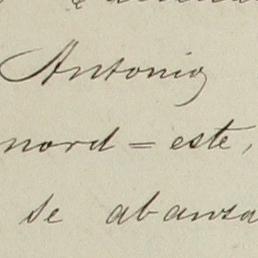 Antonio,
nord=este,
se abanza